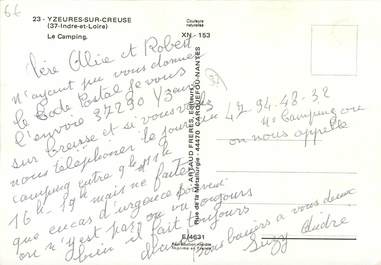 66
23 - YZEURES-SUR-CREUSE
(37-Indre-et-Loire)
Le Camping.
Couleurs
naturelles
XN - 153
ARTAUD FRÈRES, EDITEURS
Rue de la Métallurgie - 44470 CARQUEFOU-NANTES
E/4631
Reproduction interdite
Imprimé en France
et Robert
n'ayant pu vous donner
le Code Postal je vous
l'envoie 37290
sur Creuse et si vous
nous téléphoner le jour au 47.94.48-32
camping entre 9h 11h Camping on
16h-19h mais ne faites on nous appelle
que en cas d'urgence
on n'y est pas toujours
bien il fait toujours
bons baisers à vous deux
Suzy André